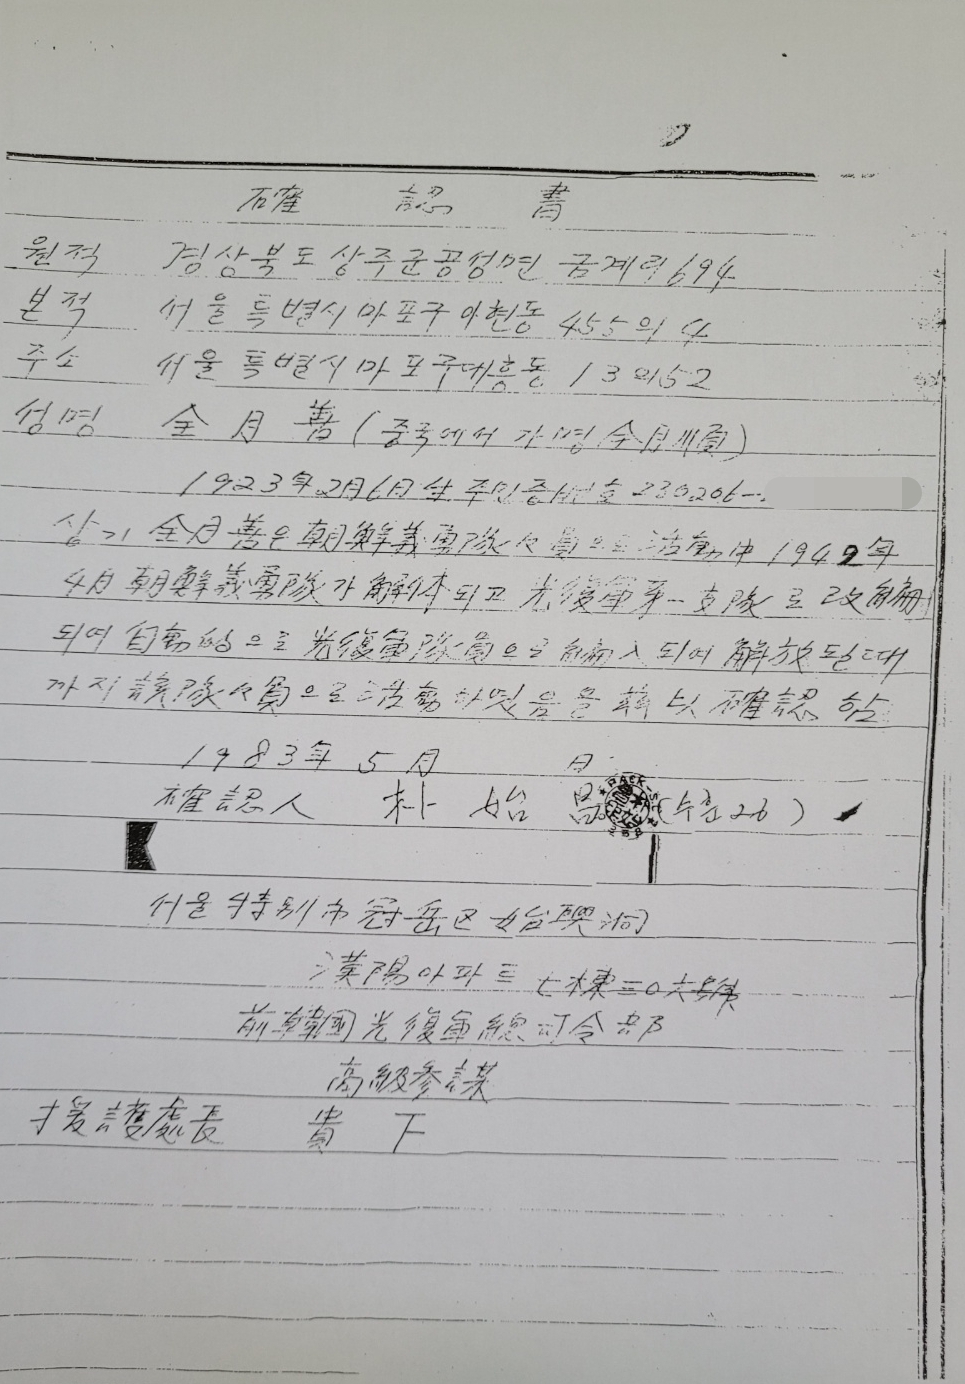 確 認 書
원적 경상북도상주군공성면 금계리 694
본적 서울특별시마포구아현동 455의 4
주소 서울특별시마포구대흥동 13의52
성명 全月善 (중국에서 가명 全月順)
1923年2月6日生 주민증번호 230206-
상기 全月善은 朝鮮義勇隊々員으로 活動中 1942年
4月 朝鮮義勇隊가 解体되고 光復軍第一支隊로 改編
되여 自動的으로 光復軍隊員으로 編入되여 解放될때
까지 該隊々員으로 活動하였음을 玆以 確認함
1983年 5月 日
確認人 朴始昌 (수춘26)
서울特別市冠岳区始興洞
漢陽아파트 七棟三0六號
前韓國光復軍總司令部
高級参謀
援護處長 貴下